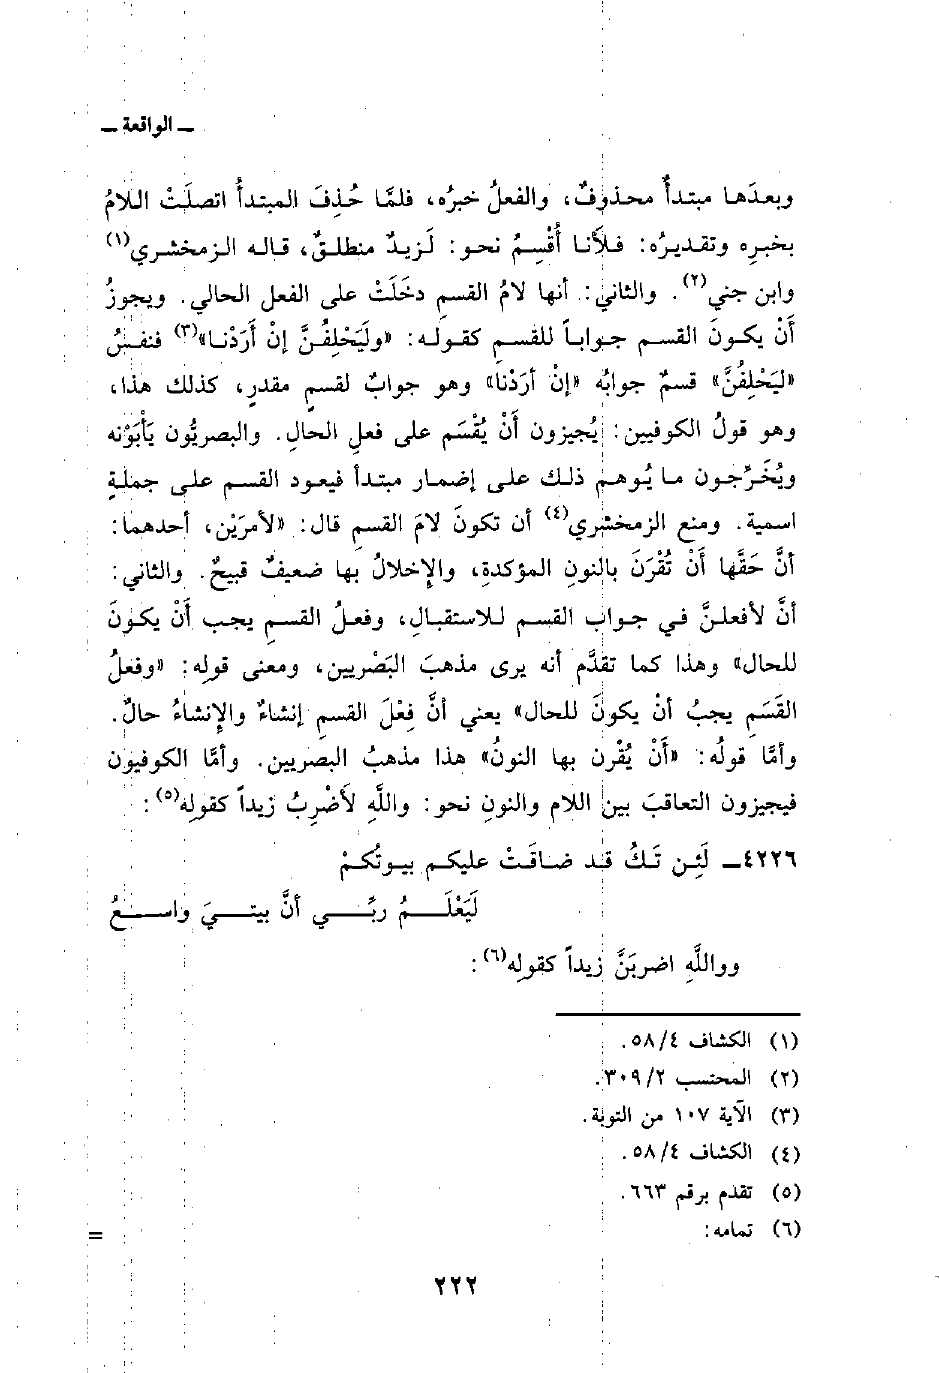 ــ الواقعة ــ
وبعدَها مبتدأٌ محذوفٌ، والفعلُ خبرُه، فلمَّا حُذِفَ المبتدأُ اتصلَتْ اللامُ
بخبرِه وتقديرُه: فلأَنا أُقْسِمُ نحو: لَزيدٌ منطلقٌ، قاله الزمخشري(١)
وابن جني(٢). والثاني: أنها لامُ القسمِ دخَلَتْ على الفعل الحالي. ويجوزُ
أَنْ يكونَ القسم جواباً للقسم كقولِه: «ولَيَحْلِفُنَّ إنْ أَرَدْنا»(٣) فنفسُ
«ليَحْلِفُنَّ» قسمٌ جوابُه «إنْ أَرَدْنا» وهو جوابٌ لقسمٍ مقدرٍ، كذلك هذا،
وهو قولُ الكوفيين: يُجيزون أَنْ يُقْسَم على فعلِ الحالِ. والبصريُّون يَأْبَوْنه
ويُخَرِّجون ما يُوهم ذلك على إضمار مبتدأ فيعود القسم على جملةٍ
اسمية. ومنع الزمخشري(٤) أن تكونَ لامَ القسمِ قال: «لأمرَيْن، أحدهما:
أنَّ حَقَّها أَنْ تُقْرَنَ بالنونِ المؤكدةِ، والإِخلالُ بها ضعيفٌ قبيحٌ. والثاني:
أنَّ لأفعلنَّ في جوابِ القسم للاستقبالِ، وفعلُ القسمِ يجب أَنْ يكونَ
للحال» وهذا كما تقدَّم أنه يرى مذهبَ البَصْريين، ومعنى قولِه: «وفعلُ
القَسَمِ يجبُ أنْ يكونَ للحال» يعني أنَّ فِعْلَ القسمِ إنشاءٌ والإِنشاءُ حالٌ.
وأمَّا قولُه: «أَنْ يُقْرن بها النونُ» هذا مذهبُ البصريين. وأمَّا الكوفيون
فيجيزون التعاقبَ بين اللام والنونِ نحو: واللَّهِ لأَضْرِبُ زيداً كقوله(٥):
٤٢٢٦ــ لَئِن تَكُ قد ضاقَتْ عليكم بيوتُكمْ
لَيَعْلَمُ ربِّي أنَّ بيتيَ واسعُ
وواللَّهِ اضربَنَّ زيداً كقولِه(٦):
(١) الكشاف ٥٨/٤.
(٢) المحتسب ٣٠٩/٢.
(٣) الآية ١٠٧ من التوبة.
(٤) الكشاف ٥٨/٤.
(٥) تقدم برقم ٦٦٣.
(٦) تمامه:
=
٢٢٢